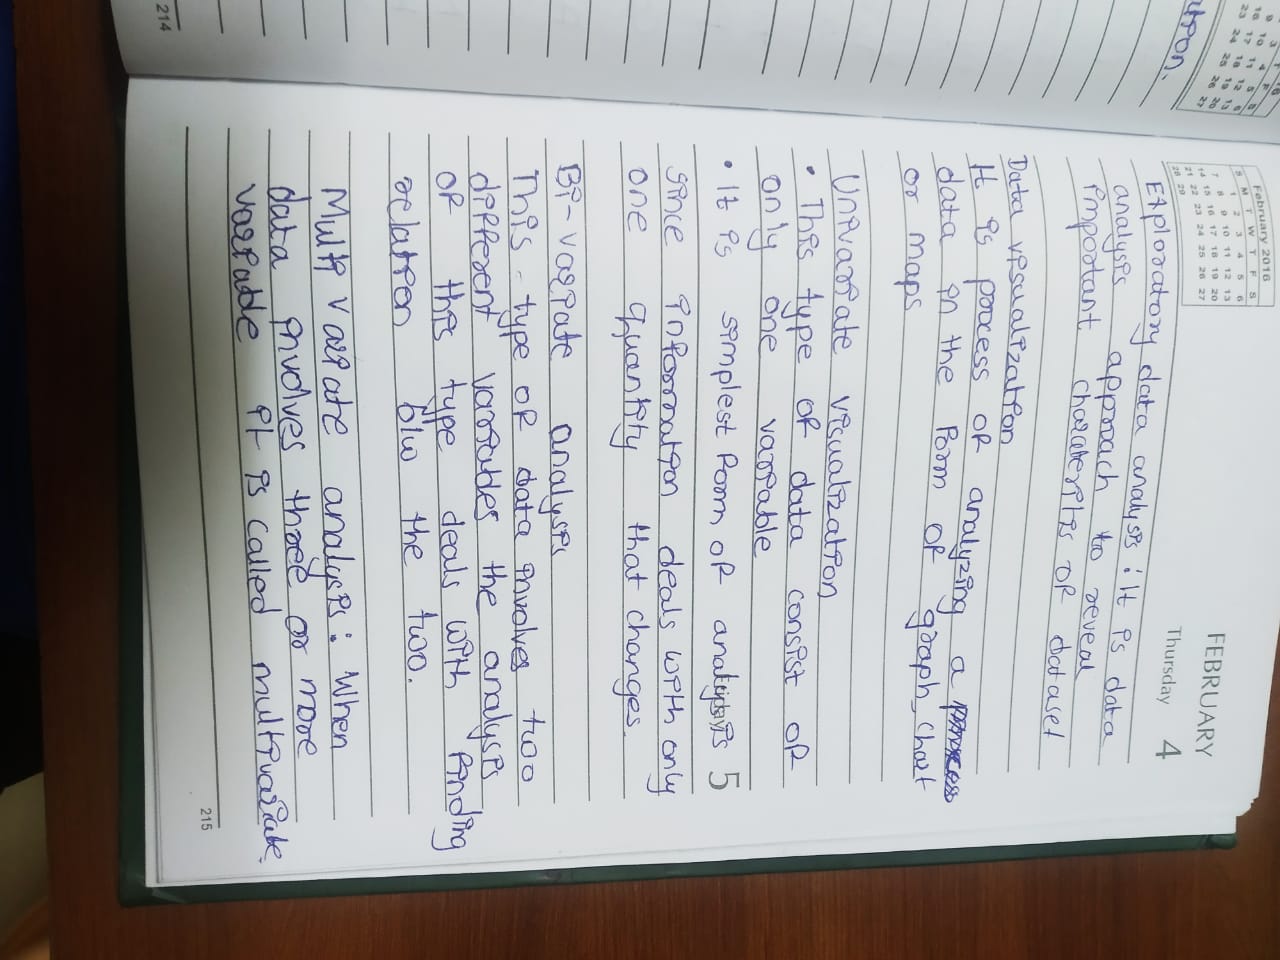 3 4 5 6
9 10 11 12 13
16 17 18 19 20
23 24 25 26 27
February 2016
S M T W T F S
1 2 3 4 5 6
7 8 9 10 11 12 13
14 15 16 17 18 19 20
21 22 23 24 25 26 27
28 29
FEBRUARY
Thursday 4
Exploratory data analysis : It is data
analysis approach to reveal
important charateritis of dataset
Data visualization
It is process of analyzing a
data in the form of graph, chart
or maps
Univariate visualization
• This type of data consist of
only one variable
• It is simplest form of analysis 5
Friday
since information deals with only
one quantity that changes.
Bi-variate analysis
This type of data involves two
different variables the analysis
of this type deals with finding
relation b/w the two.
Multi variate analysis : When
data involves three or more
variable it is called multivariate.
215
214